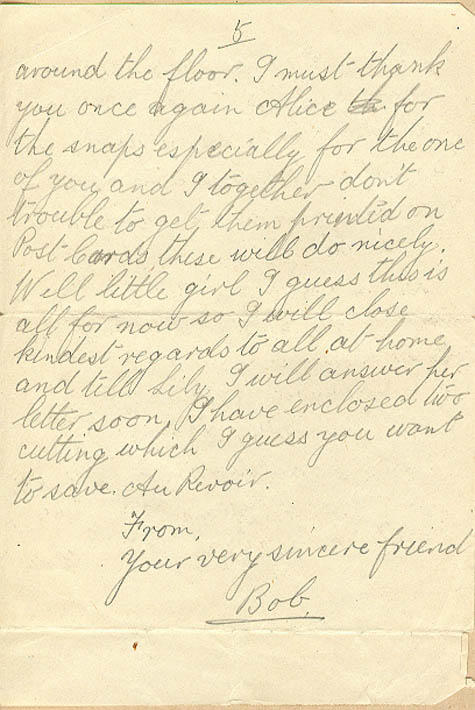 5
around the floor. I must thank
you once again Alice for
the snaps especially for the one
of you and I together don't
trouble to get them printed on
Post Cards these will do nicely.
Well little girl I guess this is
all for now so I will close
kindest regards to all at home
and tell Lily I will answer her
letter soon. I have enclosed two
cutting which I guess you want
to save. Au Revoir.
From,
Your very sincere friend
Bob.